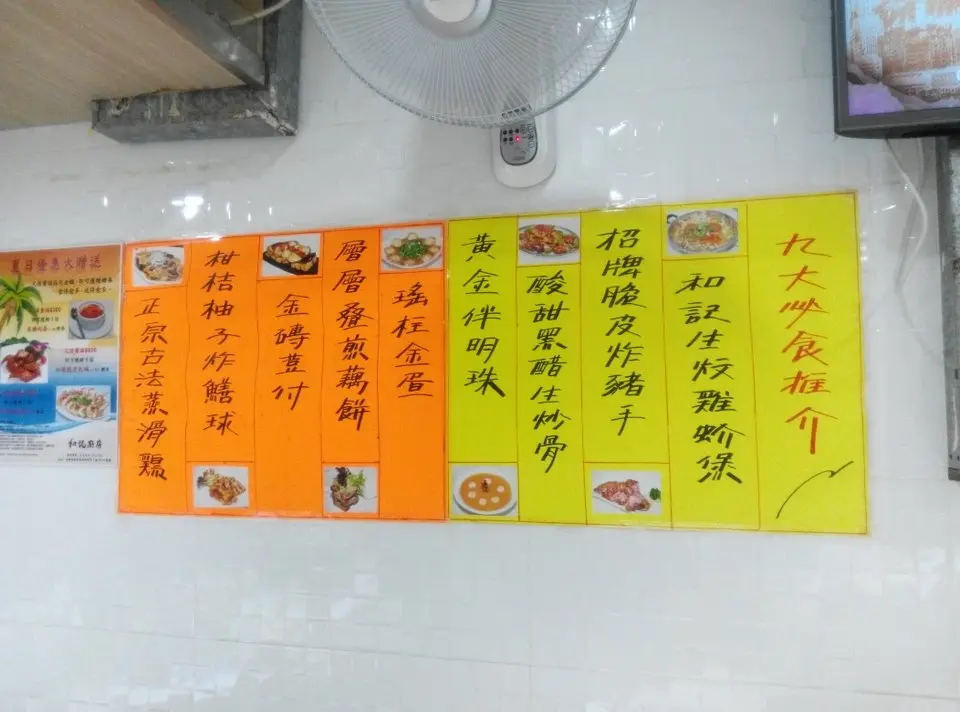 九大炒食推介
和記生炆雞蚧煲
招牌脆皮炸豬手
酸甜黑醋生炒骨
黃金伴明珠
瑤柱金蛋
層層疊煎藕餅
金磚荳付
柑桔柚子炸鱔球
正宗古法蒸滑雞
夏日優惠大贈送
和記廚房